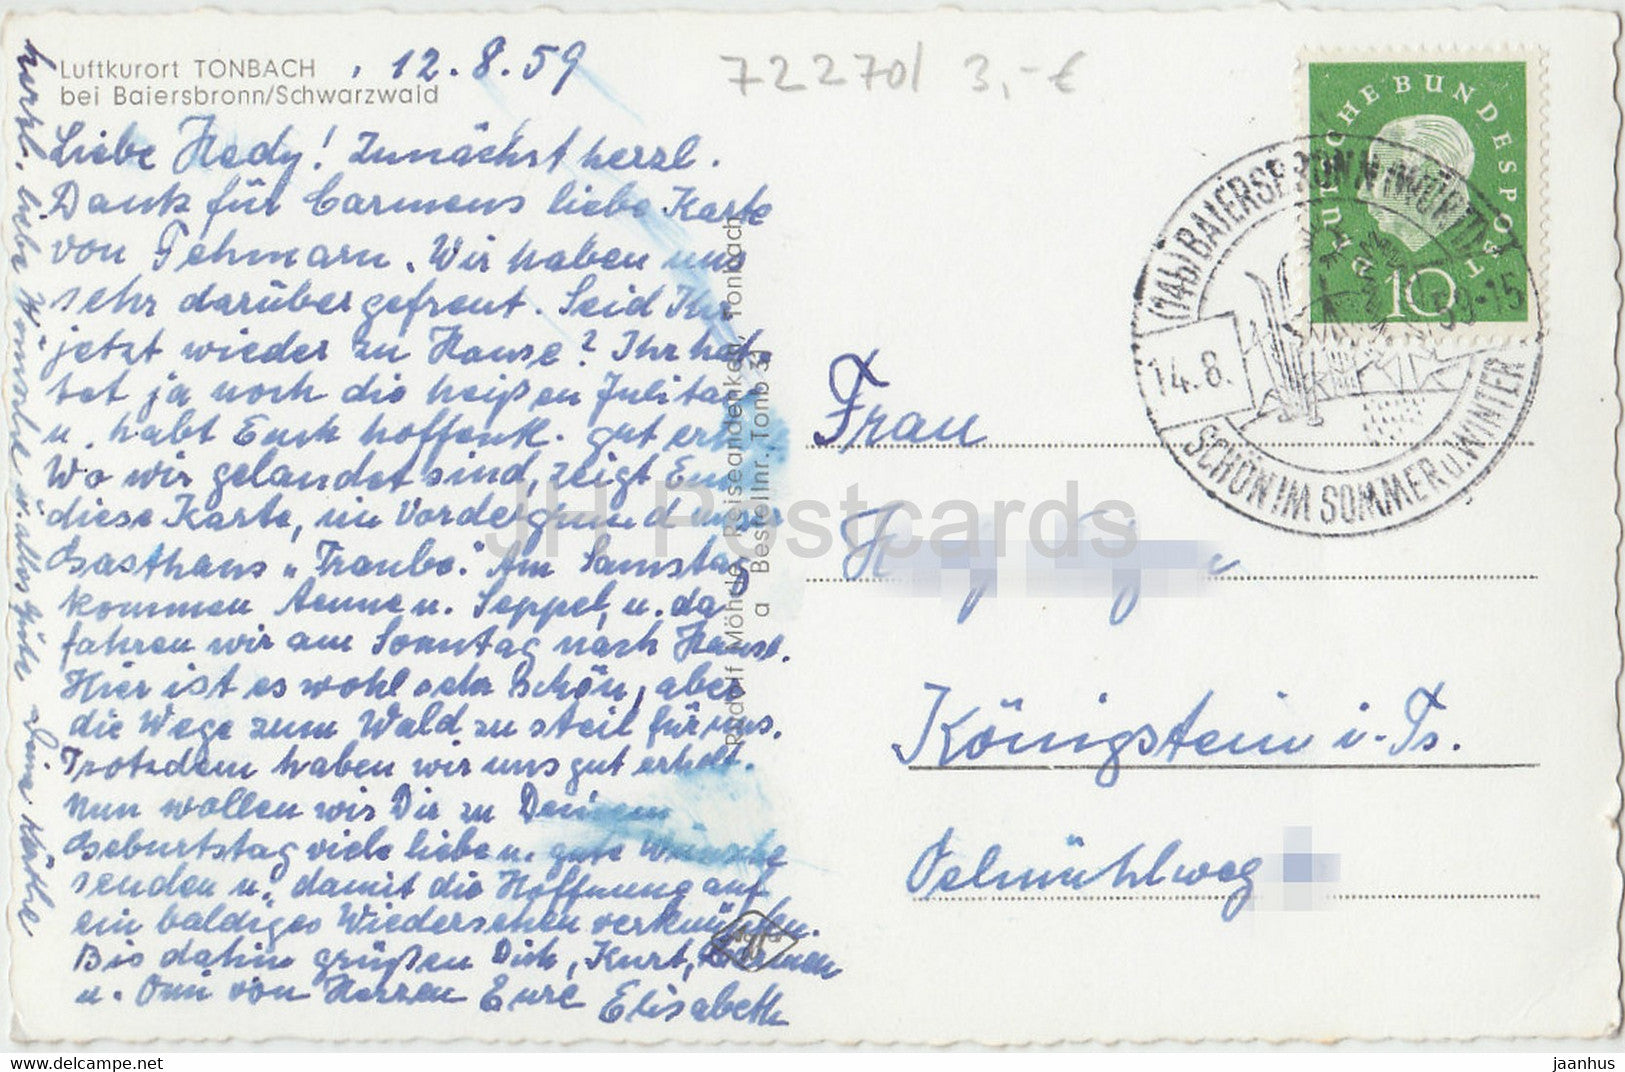 Luftkurort TONBACH , 12.8.59
bei Baiersbronn/Schwarzwald
72270/ 3,-€
Liebe Hedy! Zunächst herzl.
Dank für Carmens liebe Karte
von Fehmarn. Wir haben uns
sehr darüber gefreut. Seid Ihr
jetzt wieder zu Hause? Ihr hat-
tet ja noch die heißen Julitage
u. habt Euch hoffentl. gut erh
Wo wir gelandet sind, zeigt Euch
diese Karte, im Vordergrund unser
Gasthaus „Traube." Am Samstag
kommen Aenne u. Seppel, u. da
fahren wir am Sonntag nach Hause.
Hier ist es wohl sehr schön, aber
die Wege zum Wald zu steil für uns.
Trotzdem haben wir uns gut erholt.
Nun wollen wir Dir zu Deinem
Geburtstag viele liebe u. gute Wünsche
senden u. damit die Hoffnung auf
ein baldiges Wiedersehen verknüpfen.
Bis dahin grüßen Dich, Kurt, Carmen
u. Omi von Herzen Eure Elisabeth
herzl. liebe Wünsche u. alles Gute Deine Käthe
Rudolf Möhrle, Reiseandenken, Tonbach
a Bestellnr. Tonb 3
DEUTSCHE BUNDESPOST
10
(14b) BAIERSBRONN (WÜRTT)
14.8. 59-15
SCHÖN IM SOMMER u. WINTER
Frau
Königstein i. Ts.
Oelmühlweg
JH Postcards
https://www.delcampe.net
jaanhus